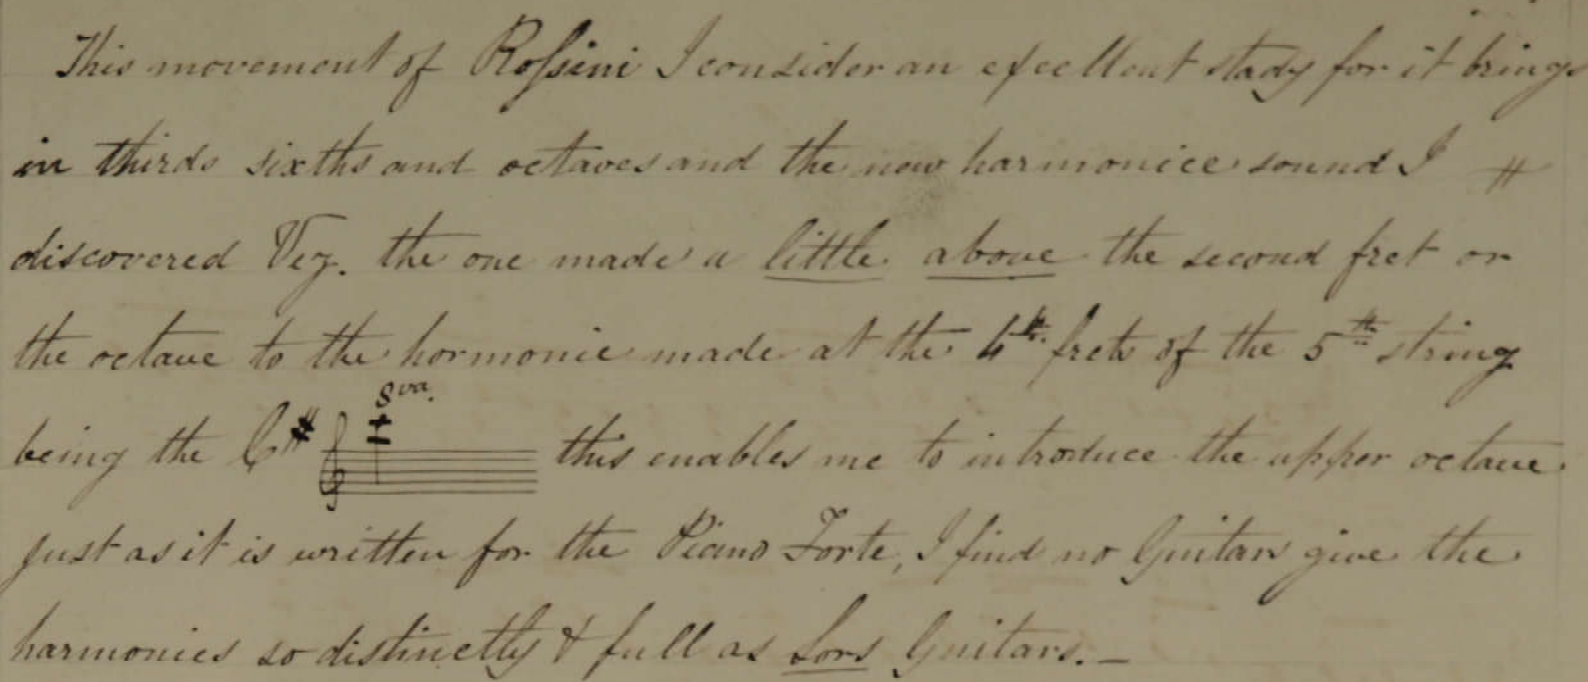 This movement of Rossini I consider an excellent study for it brings
in thirds sixths and octaves and the new harmonice sound I #
discovered Viz. the one made a little above the second fret or
the octave to the hormonic made at the 4th. frets of the 5th string
8va.
being the C# this enables me to introduce the upper octave
just as it is written for the Piano Forte, I find no Guitars give the
harmonics so distinctly & full as Sors Guitars. —